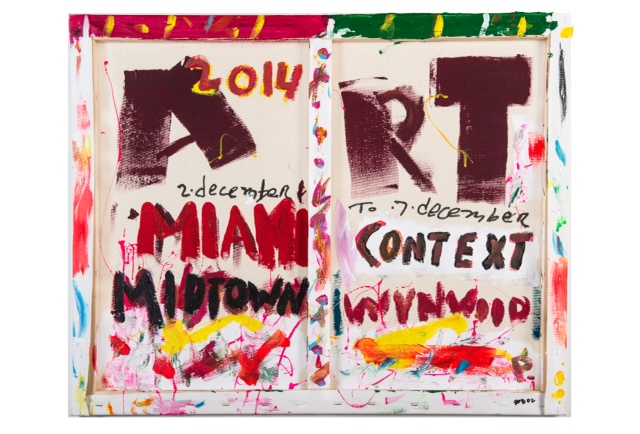 2014
ART
2. december
To .7. december
MIAMI
CONTEXT
MIDTOWN
WYNWOOD